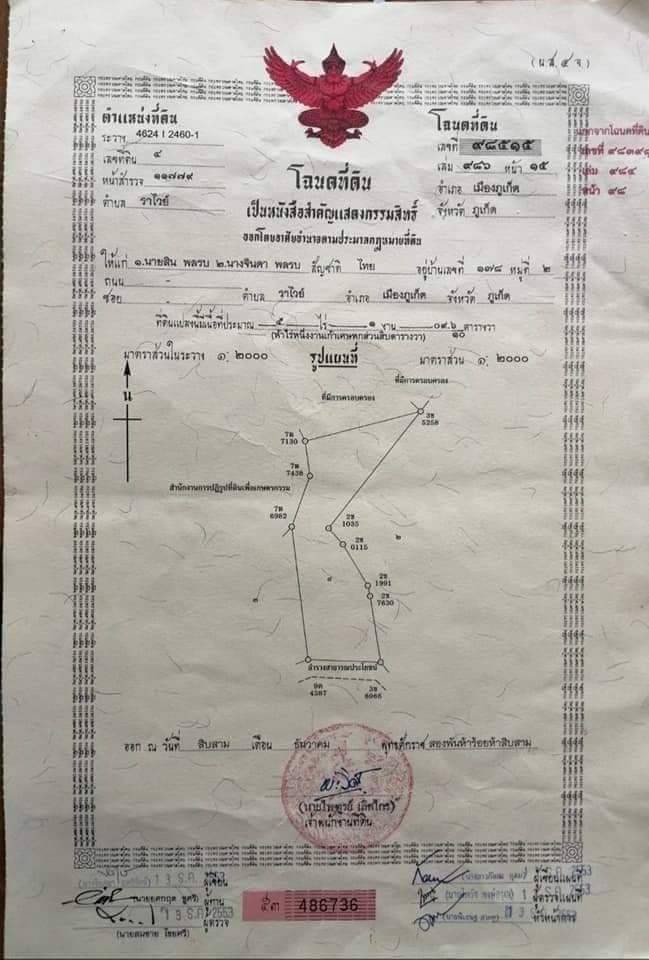 (น.ส. ๔ จ.)
ตำแหน่งที่ดิน
ระวาง 4624 I 2460-1
เลขที่ดิน ๔
หน้าสำรวจ ๑๑๗๗๙
ตำบล ราไวย์
โฉนดที่ดิน
เลขที่ ๙๘๕๑๕
เล่ม ๙๘๖ หน้า ๑๕
อำเภอ เมืองภูเก็ต
จังหวัด ภูเก็ต
แยกจากโฉนดที่ดิน
เล่ม ๙๘๔
หน้า ๙๘
โฉนดที่ดิน
เป็นหนังสือสำคัญแสดงกรรมสิทธิ์
ออกโดยอาศัยอำนาจตามประมวลกฎหมายที่ดิน
ให้แก่ ๑.นายสิน พลรบ ๒.นางจินดา พลรบ สัญชาติ ไทย อยู่บ้านเลขที่ ๑๗๘ หมู่ที่ ๒
ถนน -
ซอย - ตำบล ราไวย์ อำเภอ เมืองภูเก็ต จังหวัด ภูเก็ต
ที่ดินแปลงนี้มีเนื้อที่ประมาณ ๕ ไร่ ๑ งาน ๐๙.๖/๑๐ ตารางวา
(ห้าไร่หนึ่งงานเก้าเศษหกส่วนสิบตารางวา)
มาตราส่วนในระวาง ๑: ๒๐๐๐ รูปแผนที่ มาตราส่วน ๑: ๒๐๐๐
น
ที่มีการครอบครอง
ที่มีการครอบครอง
3ข
5258
7ด
7130
7ด
7438
สำนักงานการปฏิรูปที่ดินเพื่อเกษตรกรรม
7ด
6982
2ข
1035
๒
2ข
0115
๔
2ข
1991
2ข
7630
๓
ลำรางสาธารณประโยชน์
4387
3ข
6966
ออก ณ วันที่ สิบสาม เดือน ธันวาคม พุทธศักราช สองพันห้าร้อยห้าสิบสาม
(นายไพฑูรย์ เลิศไกร)
เจ้าพนักงานที่ดิน
ผู้เขียน
ผู้ทาน
1 3 ธ.ค. 2553
ผู้ตรวจ
(นายสมชาย ไชยศรี)
๕๓ 486736
ผู้เขียนแผนที่
ผู้ตรวจแผนที่
หัวหน้าการ